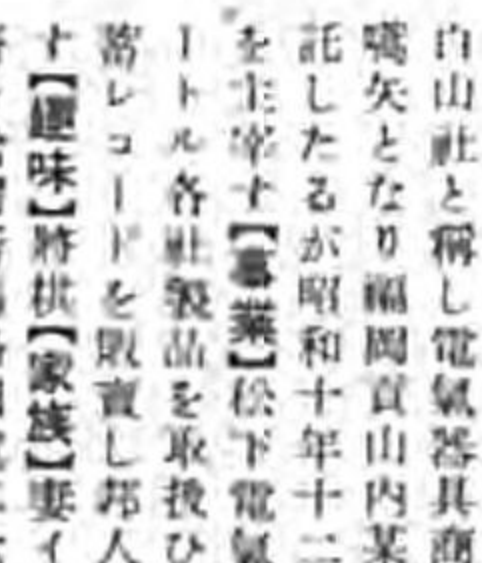 白山社と稱し電氣器具商
嚆矢となり福岡貢山内某
託したるが昭和十年十二
を主宰す【事業】松下電氣
ートル各社製品を取扱ひ
蓄レコードを販賣し邦人
す【趣味】將棋【家族】妻イ